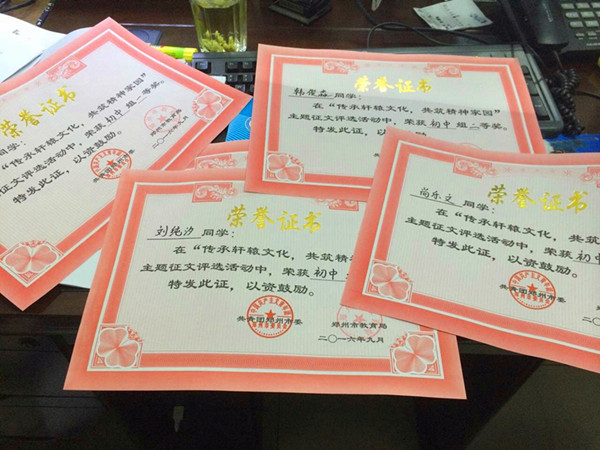 荣誉证书
同学:
“传承轩辕文化，共筑精神家园”
征文评选活动中，荣获初中组二等奖。
特发此证，以资鼓励。
共青团郑州市委
郑州市教育局
二〇一六年
荣誉证书
同学:
在“传承轩辕文化，共筑精神家园”
主题征文评选活动中，荣获初中组二等奖。
特发此证，以资鼓励。
荣誉证书
刘纯汐 同学:
在“传承轩辕文化，共筑精神
主题征文评选活动中，荣获初中
特发此证，以资鼓励。
共青团郑州市委
郑州市教育局
二〇一六年九月
荣誉证书
尚东文 同学:
在“传承轩辕文化，共筑
主题征文评选活动中，荣获初中
特发此证，以资鼓励。
共青团郑州市委
郑州
二〇一六